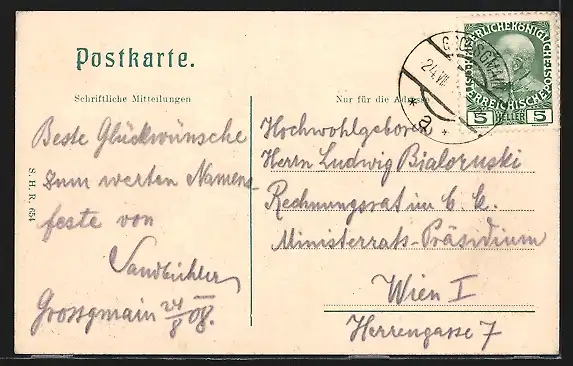 Postkarte.
Schriftliche Mitteilungen
Nur für die Adresse
Beste Glückwünsche
zum werten Namens-
feste von
Sandbichler
Grossgmain 24/8 08.
S. H. R. 654
Hochwohlgeboren
Herrn Ludwig Bialoruski
Rechnungsrat im k. k.
Ministerrats-Präsidium
Wien I
Herrengasse 7
KAISERLICHE KÖNIGLICHE
ÖSTERREICHISCHE POST
5 HELLER 5
GROSSGMAIN
24 VIII